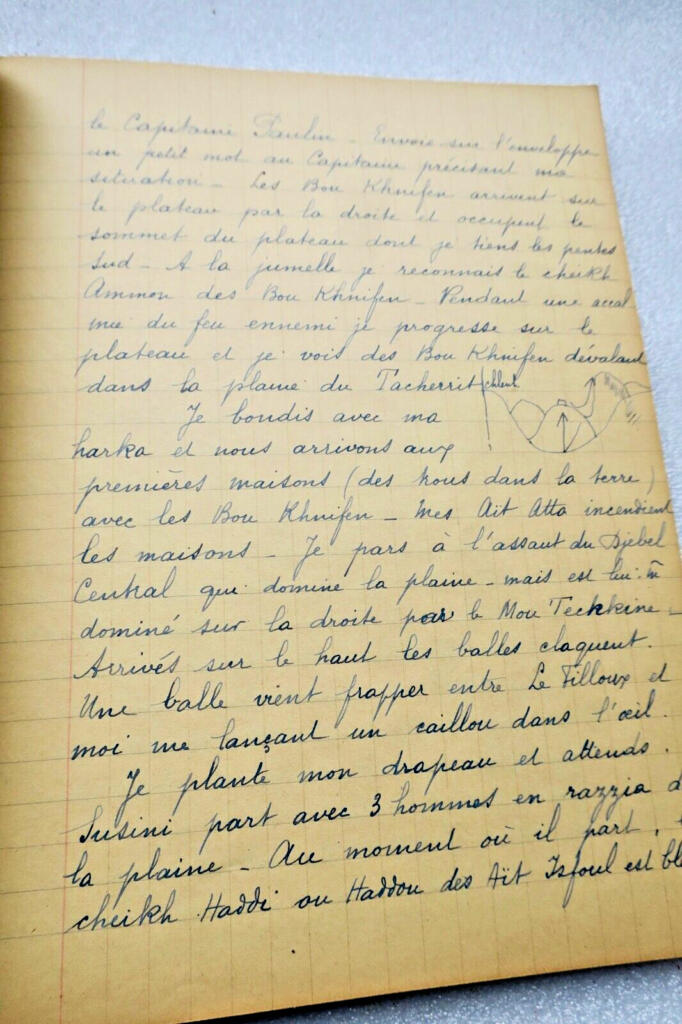 le Capitaine Paulin - Envoie sur l'enveloppe
un petit mot au Capitaine précisant ma
situation - Les Bou Khnifen arrivent sur
le plateau par la droite et occupent le
sommet du plateau dont je tiens les pentes
Sud - A la jumelle je reconnais le cheikh
Ammon des Bou Khnifen - Pendant une accal
mie du feu ennemi je progresse sur le
plateau et je vois des Bou Khnifen dévalant
dans la plaine du Tacherrit
Je bondis avec ma
harka et nous arrivons aux
premières maisons (des trous dans la terre)
avec les Bou Khnifen - Mes Aït Atta incendient
les maisons - Je pars à l'assaut du Djebel
Central qui domine la plaine - mais est lui-m̄
dominé sur la droite par le Mou Teckkine -
Arrivés sur le haut les balles claquent.
Une balle vient frapper entre Le Filloux et
moi me lançant un caillou dans l'œil.
Je plante mon drapeau et attends.
Susini part avec 3 hommes en razzia d
la plaine - Au moment où il part,
cheikh Haddi ou Haddou des Aït Isfoul est ble